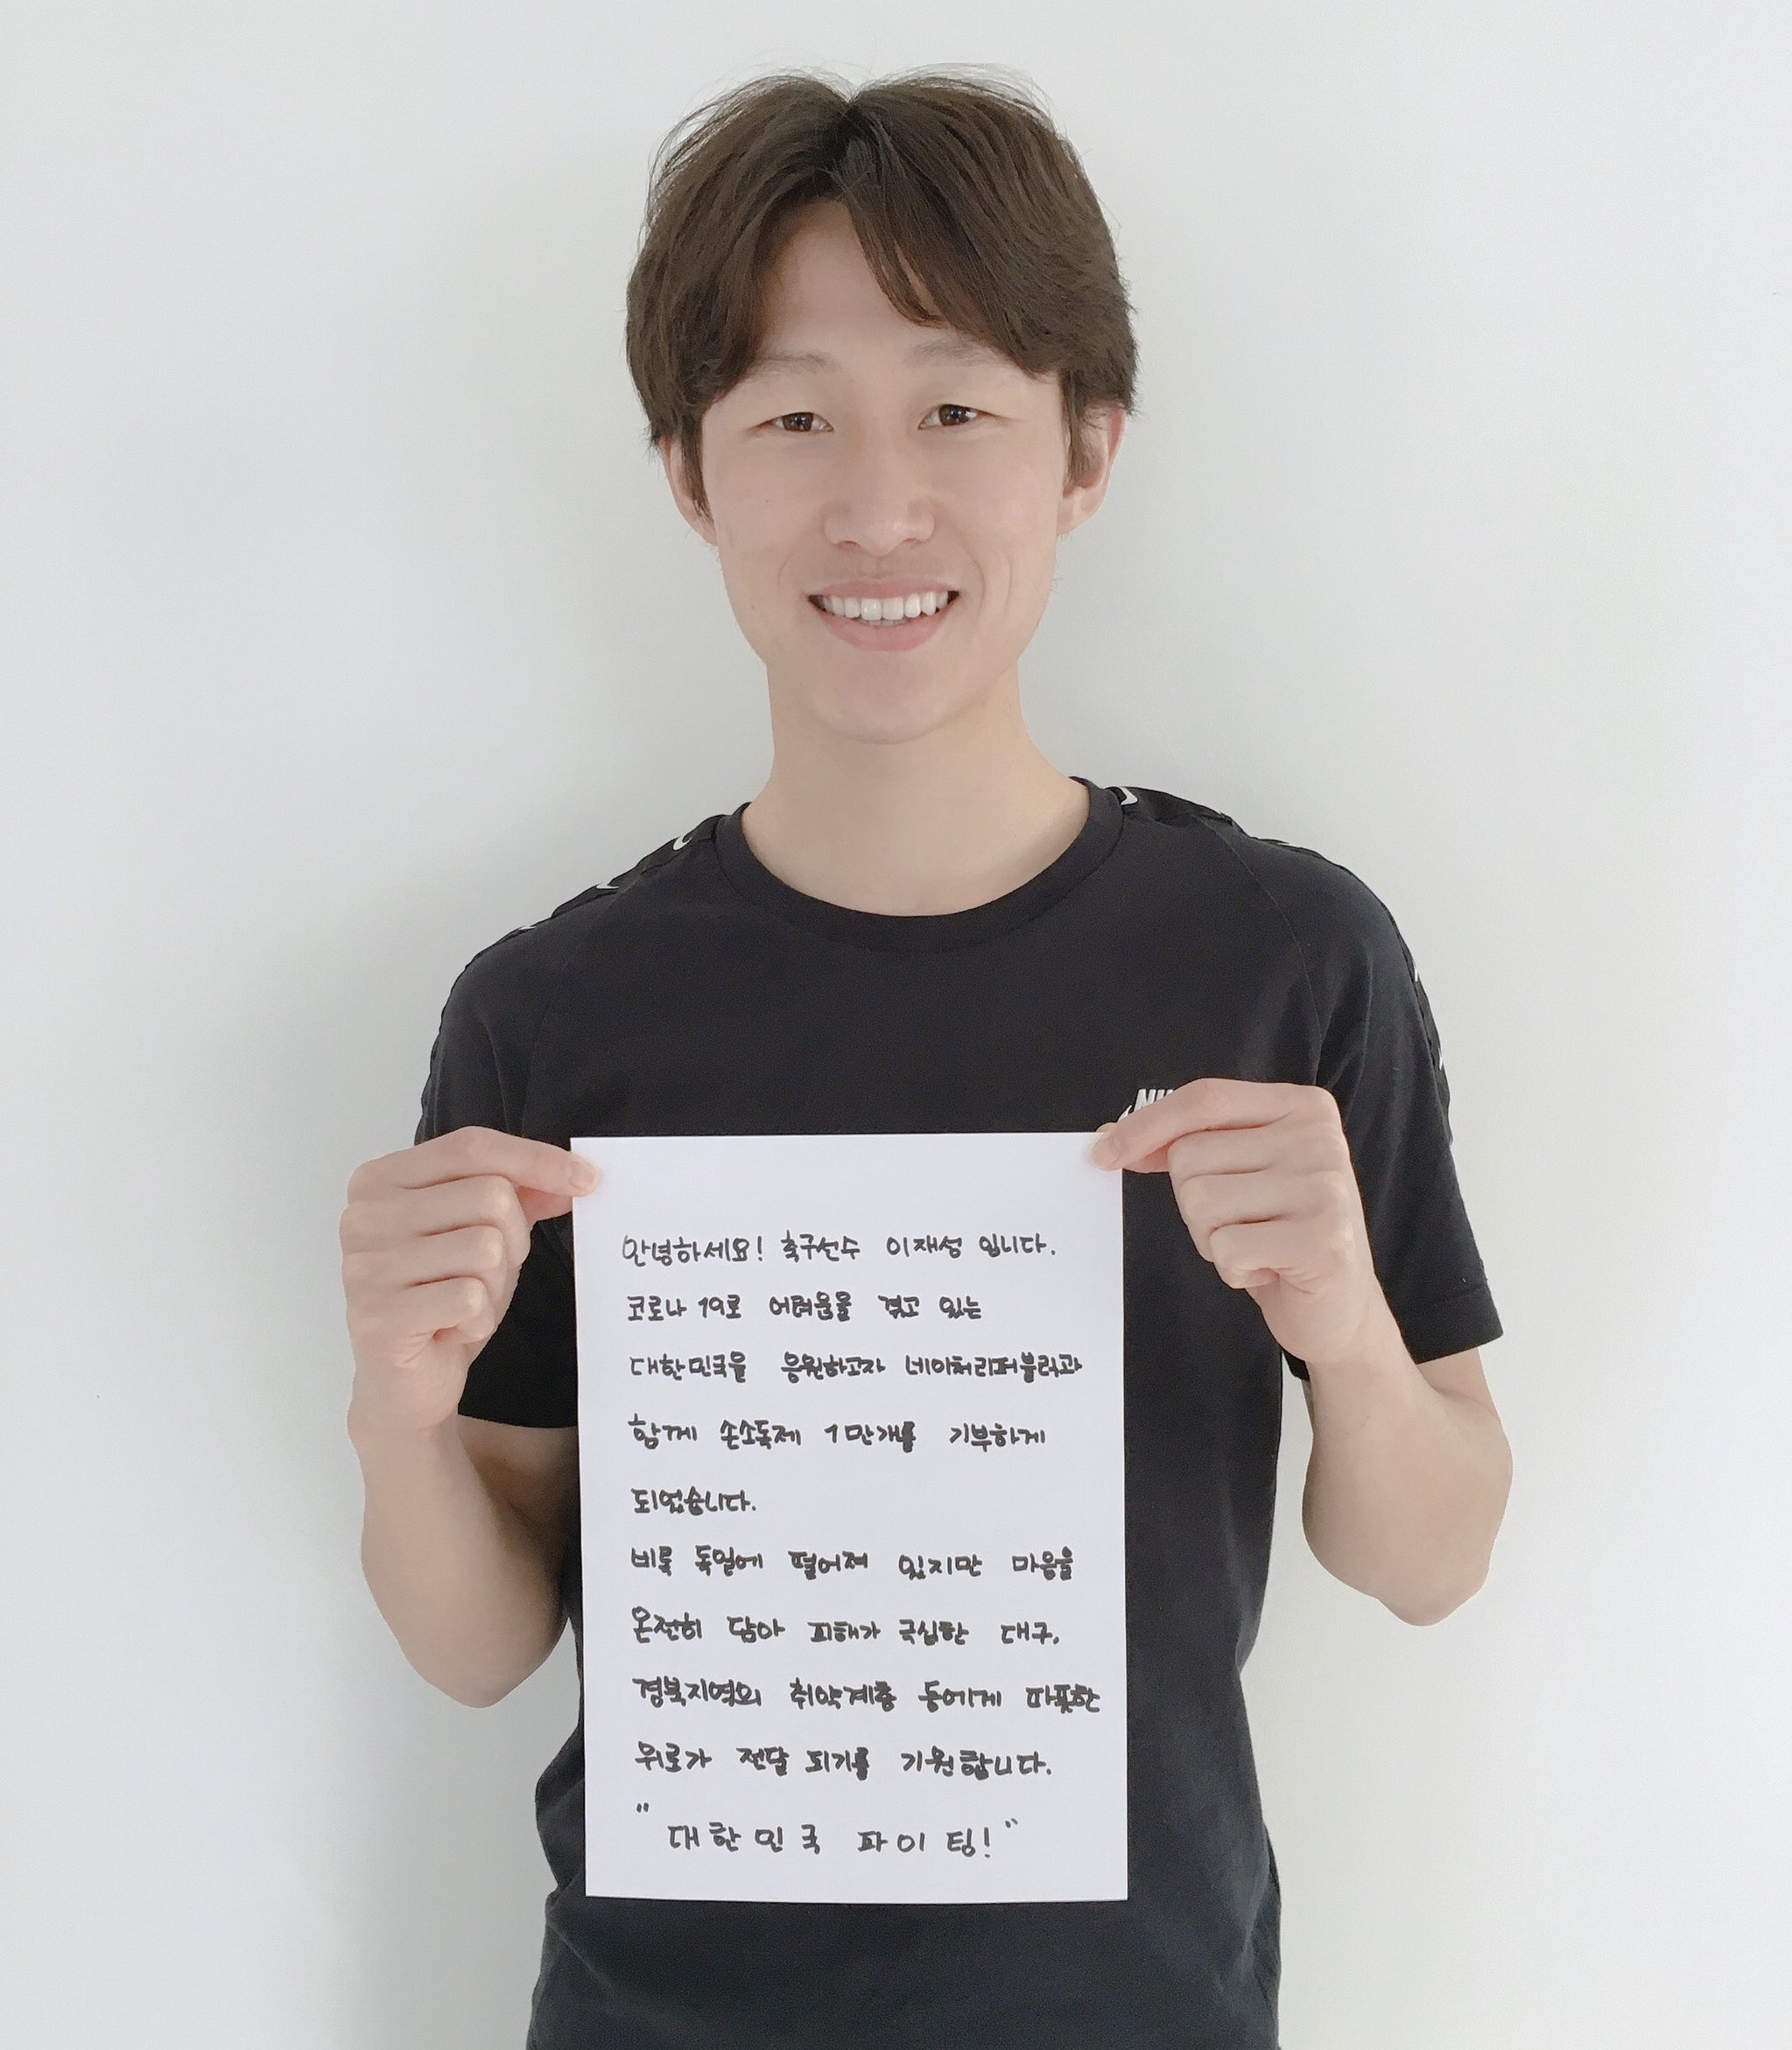 NI
안녕하세요! 축구선수 이재성 입니다.
코로나 19로 어려움을 겪고 있는
대한민국을 응원하고자 네이처리퍼블릭과
함께 손소독제 1만개를 기부하게
되었습니다.
비록 독일에 떨어져 있지만 마음을
온전히 담아 피해가 극심한 대구,
경북지역의 취약계층 등에게 따뜻한
위로가 전달 되기를 기원합니다.
"대한민국 파이팅!"